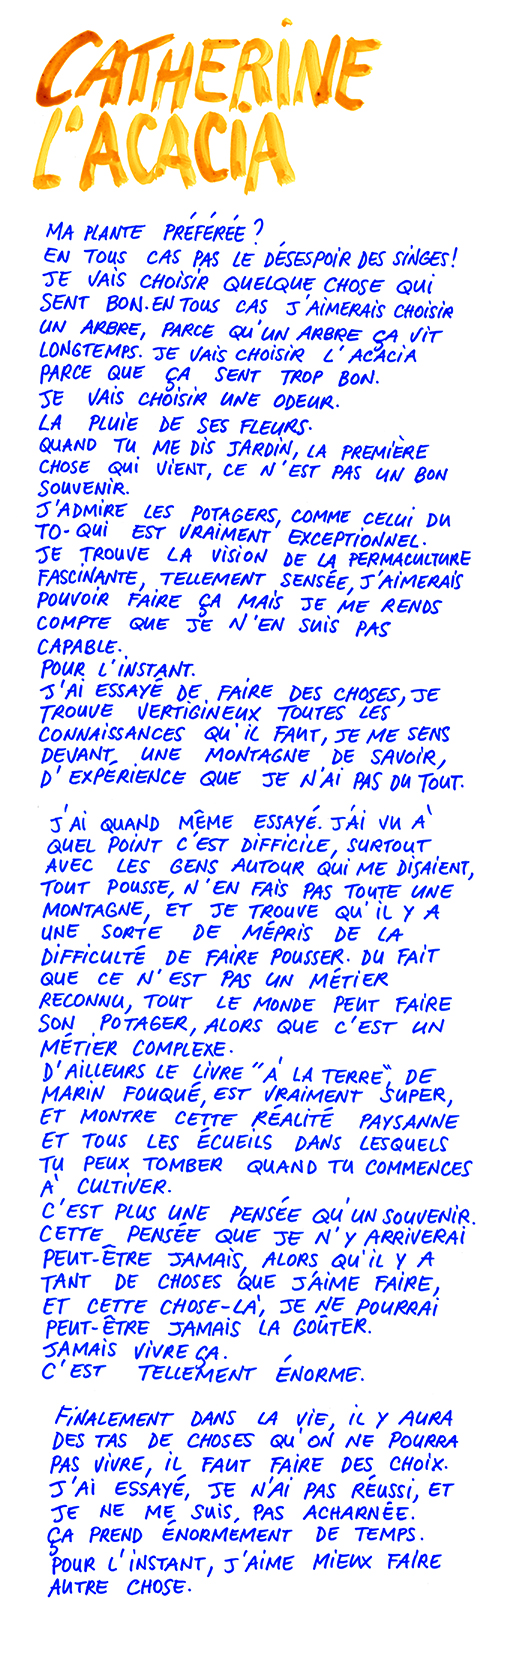 CATHERINE
L'ACACIA
MA PLANTE PRÉFÉRÉE ?
EN TOUS CAS PAS LE DÉSESPOIR DES SINGES !
JE VAIS CHOISIR QUELQUE CHOSE QUI
SENT BON. EN TOUS CAS J'AIMERAIS CHOISIR
UN ARBRE, PARCE QU'UN ARBRE ÇA VIT
LONGTEMPS. JE VAIS CHOISIR L'ACACIA
PARCE QUE ÇA SENT TROP BON.
JE VAIS CHOISIR UNE ODEUR.
LA PLUIE DE SES FLEURS.
QUAND TU ME DIS JARDIN, LA PREMIÈRE
CHOSE QUI VIENT, CE N'EST PAS UN BON
SOUVENIR.
J'ADMIRE LES POTAGERS, COMME CELUI DU
TO-QUI EST VRAIMENT EXCEPTIONNEL.
JE TROUVE LA VISION DE LA PERMACULTURE
FASCINANTE, TELLEMENT SENSÉE, J'AIMERAIS
POUVOIR FAIRE ÇA MAIS JE ME RENDS
COMPTE QUE JE N'EN SUIS PAS
CAPABLE.
POUR L'INSTANT.
J'AI ESSAYÉ DE FAIRE DES CHOSES, JE
TROUVE VERTIGINEUX TOUTES LES
CONNAISSANCES QU'IL FAUT, JE ME SENS
DEVANT UNE MONTAGNE DE SAVOIR,
D'EXPÉRIENCE QUE JE N'AI PAS DU TOUT.
J'AI QUAND MÊME ESSAYÉ. J'AI VU À
QUEL POINT C'EST DIFFICILE, SURTOUT
AVEC LES GENS AUTOUR QUI ME DISAIENT,
TOUT POUSSE, N'EN FAIS PAS TOUTE UNE
MONTAGNE, ET JE TROUVE QU'IL Y A
UNE SORTE DE MÉPRIS DE LA
DIFFICULTÉ DE FAIRE POUSSER. DU FAIT
QUE CE N'EST PAS UN MÉTIER
RECONNU, TOUT LE MONDE PEUT FAIRE
SON POTAGER, ALORS QUE C'EST UN
MÉTIER COMPLEXE.
D'AILLEURS LE LIVRE "À LA TERRE", DE
MARIN FOUQUÉ, EST VRAIMENT SUPER,
ET MONTRE CETTE RÉALITÉ PAYSANNE
ET TOUS LES ÉCUEILS DANS LESQUELS
TU PEUX TOMBER QUAND TU COMMENCES
À CULTIVER.
C'EST PLUS UNE PENSÉE QU'UN SOUVENIR.
CETTE PENSÉE QUE JE N'Y ARRIVERAI
PEUT-ÊTRE JAMAIS, ALORS QU'IL Y A
TANT DE CHOSES QUE J'AIME FAIRE,
ET CETTE CHOSE-LÀ, JE NE POURRAI
PEUT-ÊTRE JAMAIS LA GOÛTER.
JAMAIS VIVRE ÇA.
C'EST TELLEMENT ÉNORME.
FINALEMENT DANS LA VIE, IL Y AURA
DES TAS DE CHOSES QU'ON NE POURRA
PAS VIVRE, IL FAUT FAIRE DES CHOIX.
J'AI ESSAYÉ, JE N'AI PAS RÉUSSI, ET
JE NE ME SUIS PAS ACHARNÉE.
ÇA PREND ÉNORMEMENT DE TEMPS.
POUR L'INSTANT, J'AIME MIEUX FAIRE
AUTRE CHOSE.